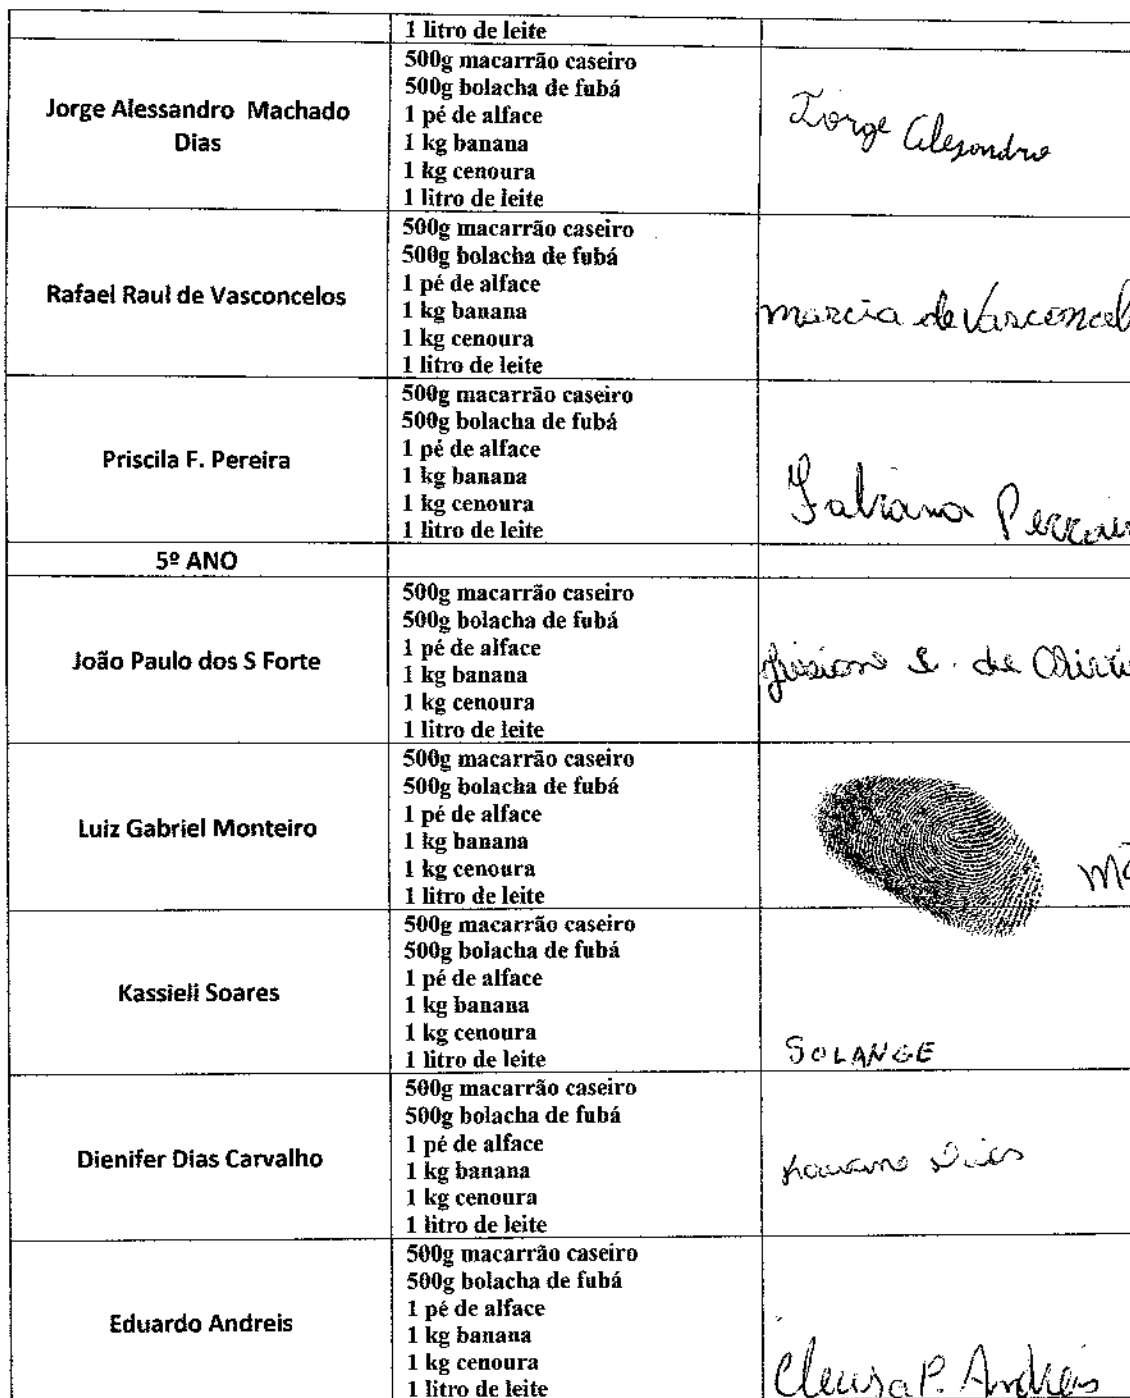 1 litro de leite
Jorge Alessandro Machado
Dias
500g macarrão caseiro
500g bolacha de fubá
1 pé de alface
1 kg banana
1 kg cenoura
1 litro de leite
Jorge Alesondro
Rafael Raul de Vasconcelos
500g macarrão caseiro
500g bolacha de fubá
1 pé de alface
1 kg banana
1 kg cenoura
1 litro de leite
marcia de Vasconcel
Priscila F. Pereira
500g macarrão caseiro
500g bolacha de fubá
1 pé de alface
1 kg banana
1 kg cenoura
1 litro de leite
Fabiana
5º ANO
João Paulo dos S Forte
500g macarrão caseiro
500g bolacha de fubá
1 pé de alface
1 kg banana
1 kg cenoura
1 litro de leite
de
Luiz Gabriel Monteiro
500g macarrão caseiro
500g bolacha de fubá
1 pé de alface
1 kg banana
1 kg cenoura
1 litro de leite
Kassieli Soares
500g macarrão caseiro
500g bolacha de fubá
1 pé de alface
1 kg banana
1 kg cenoura
1 litro de leite
SOLANGE
Dienifer Dias Carvalho
500g macarrão caseiro
500g bolacha de fubá
1 pé de alface
1 kg banana
1 kg cenoura
1 litro de leite
Dias
Eduardo Andreis
500g macarrão caseiro
500g bolacha de fubá
1 pé de alface
1 kg banana
1 kg cenoura
1 litro de leite
Cleusa P. Andreis